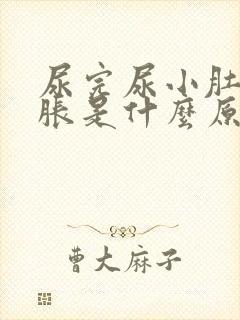 尿完尿小肚
脹是什麼原
曹大麻子